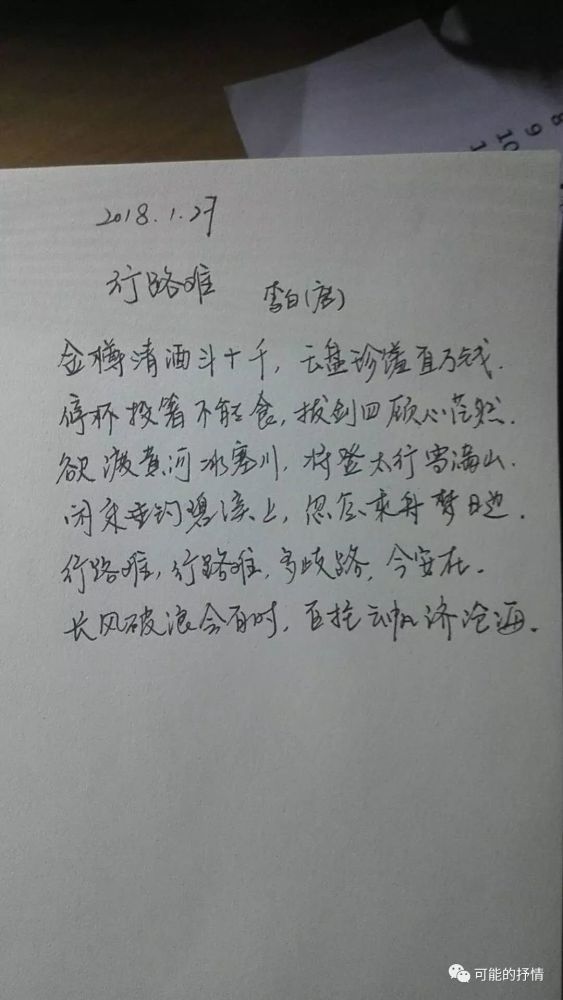 8
9
10
1
2018.1.27
行路难 李白(唐)
金樽清酒斗十千，玉盘珍馐直万钱.
停杯投箸不能食，拔剑四顾心茫然.
欲渡黄河冰塞川，将登太行雪满山.
闲来垂钓碧溪上，忽复乘舟梦日边.
行路难，行路难，多歧路，今安在.
长风破浪会有时，直挂云帆济沧海.
可能的抒情